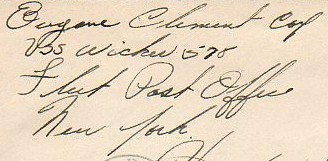 Eugene Clement Cox
USS Wicker 578
Fleet Post Office
New York.